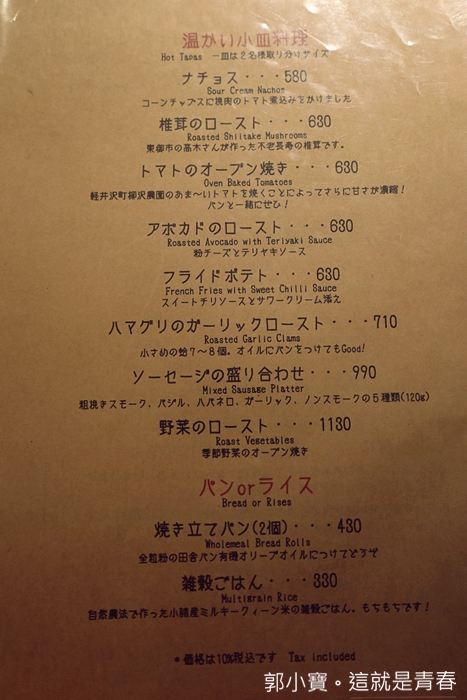 温かい小皿料理
Hot Tapas 一皿は2名様取り分けサイズ
ナチョス・・・580
Sour Cream Nachos
コーンチップスに挽肉のトマト煮込みをかけました
椎茸のロースト・・・630
Roasted Shiitake Mushrooms
東御市の高木さんが作った不老長寿の椎茸です。
トマトのオーブン焼き・・・630
Oven Baked Tomatoes
軽井沢町柳沢農園のあま〜いトマトを焼くことによってさらに甘さが濃縮!
パンと一緒にぜひ!
アボカドのロースト・・・630
Roasted Avocado with Teriyaki Sauce
粉チーズとテリヤキソース
フライドポテト・・・630
French Fries with Sweet Chilli Sauce
スイートチリソースとサワークリーム添え
ハマグリのガーリックロースト・・・710
Roasted Garlic Clams
小さめの蛤7〜8個。オイルにパンをつけてもGood!
ソーセージの盛り合わせ・・・990
Mixed Sausage Platter
粗挽きスモーク、バジル、ハバネロ、ガーリック、ノンスモークの5種類(120g)
野菜のロースト・・・1130
Roast Vegetables
季節野菜のオーブン焼き
パンorライス
Bread or Rises
焼き立てパン(2個)・・・430
Wholemeal Bread Rolls
全粒粉の田舎パン有機オリーブオイルにつけてどうぞ
雑穀ごはん・・・330
Multigrain Rice
自然農法で作った小諸産ミルキークィーン米の雑穀ごはん。もちもちです!
*価格は10%税込です Tax included
郭小寶。這就是青春